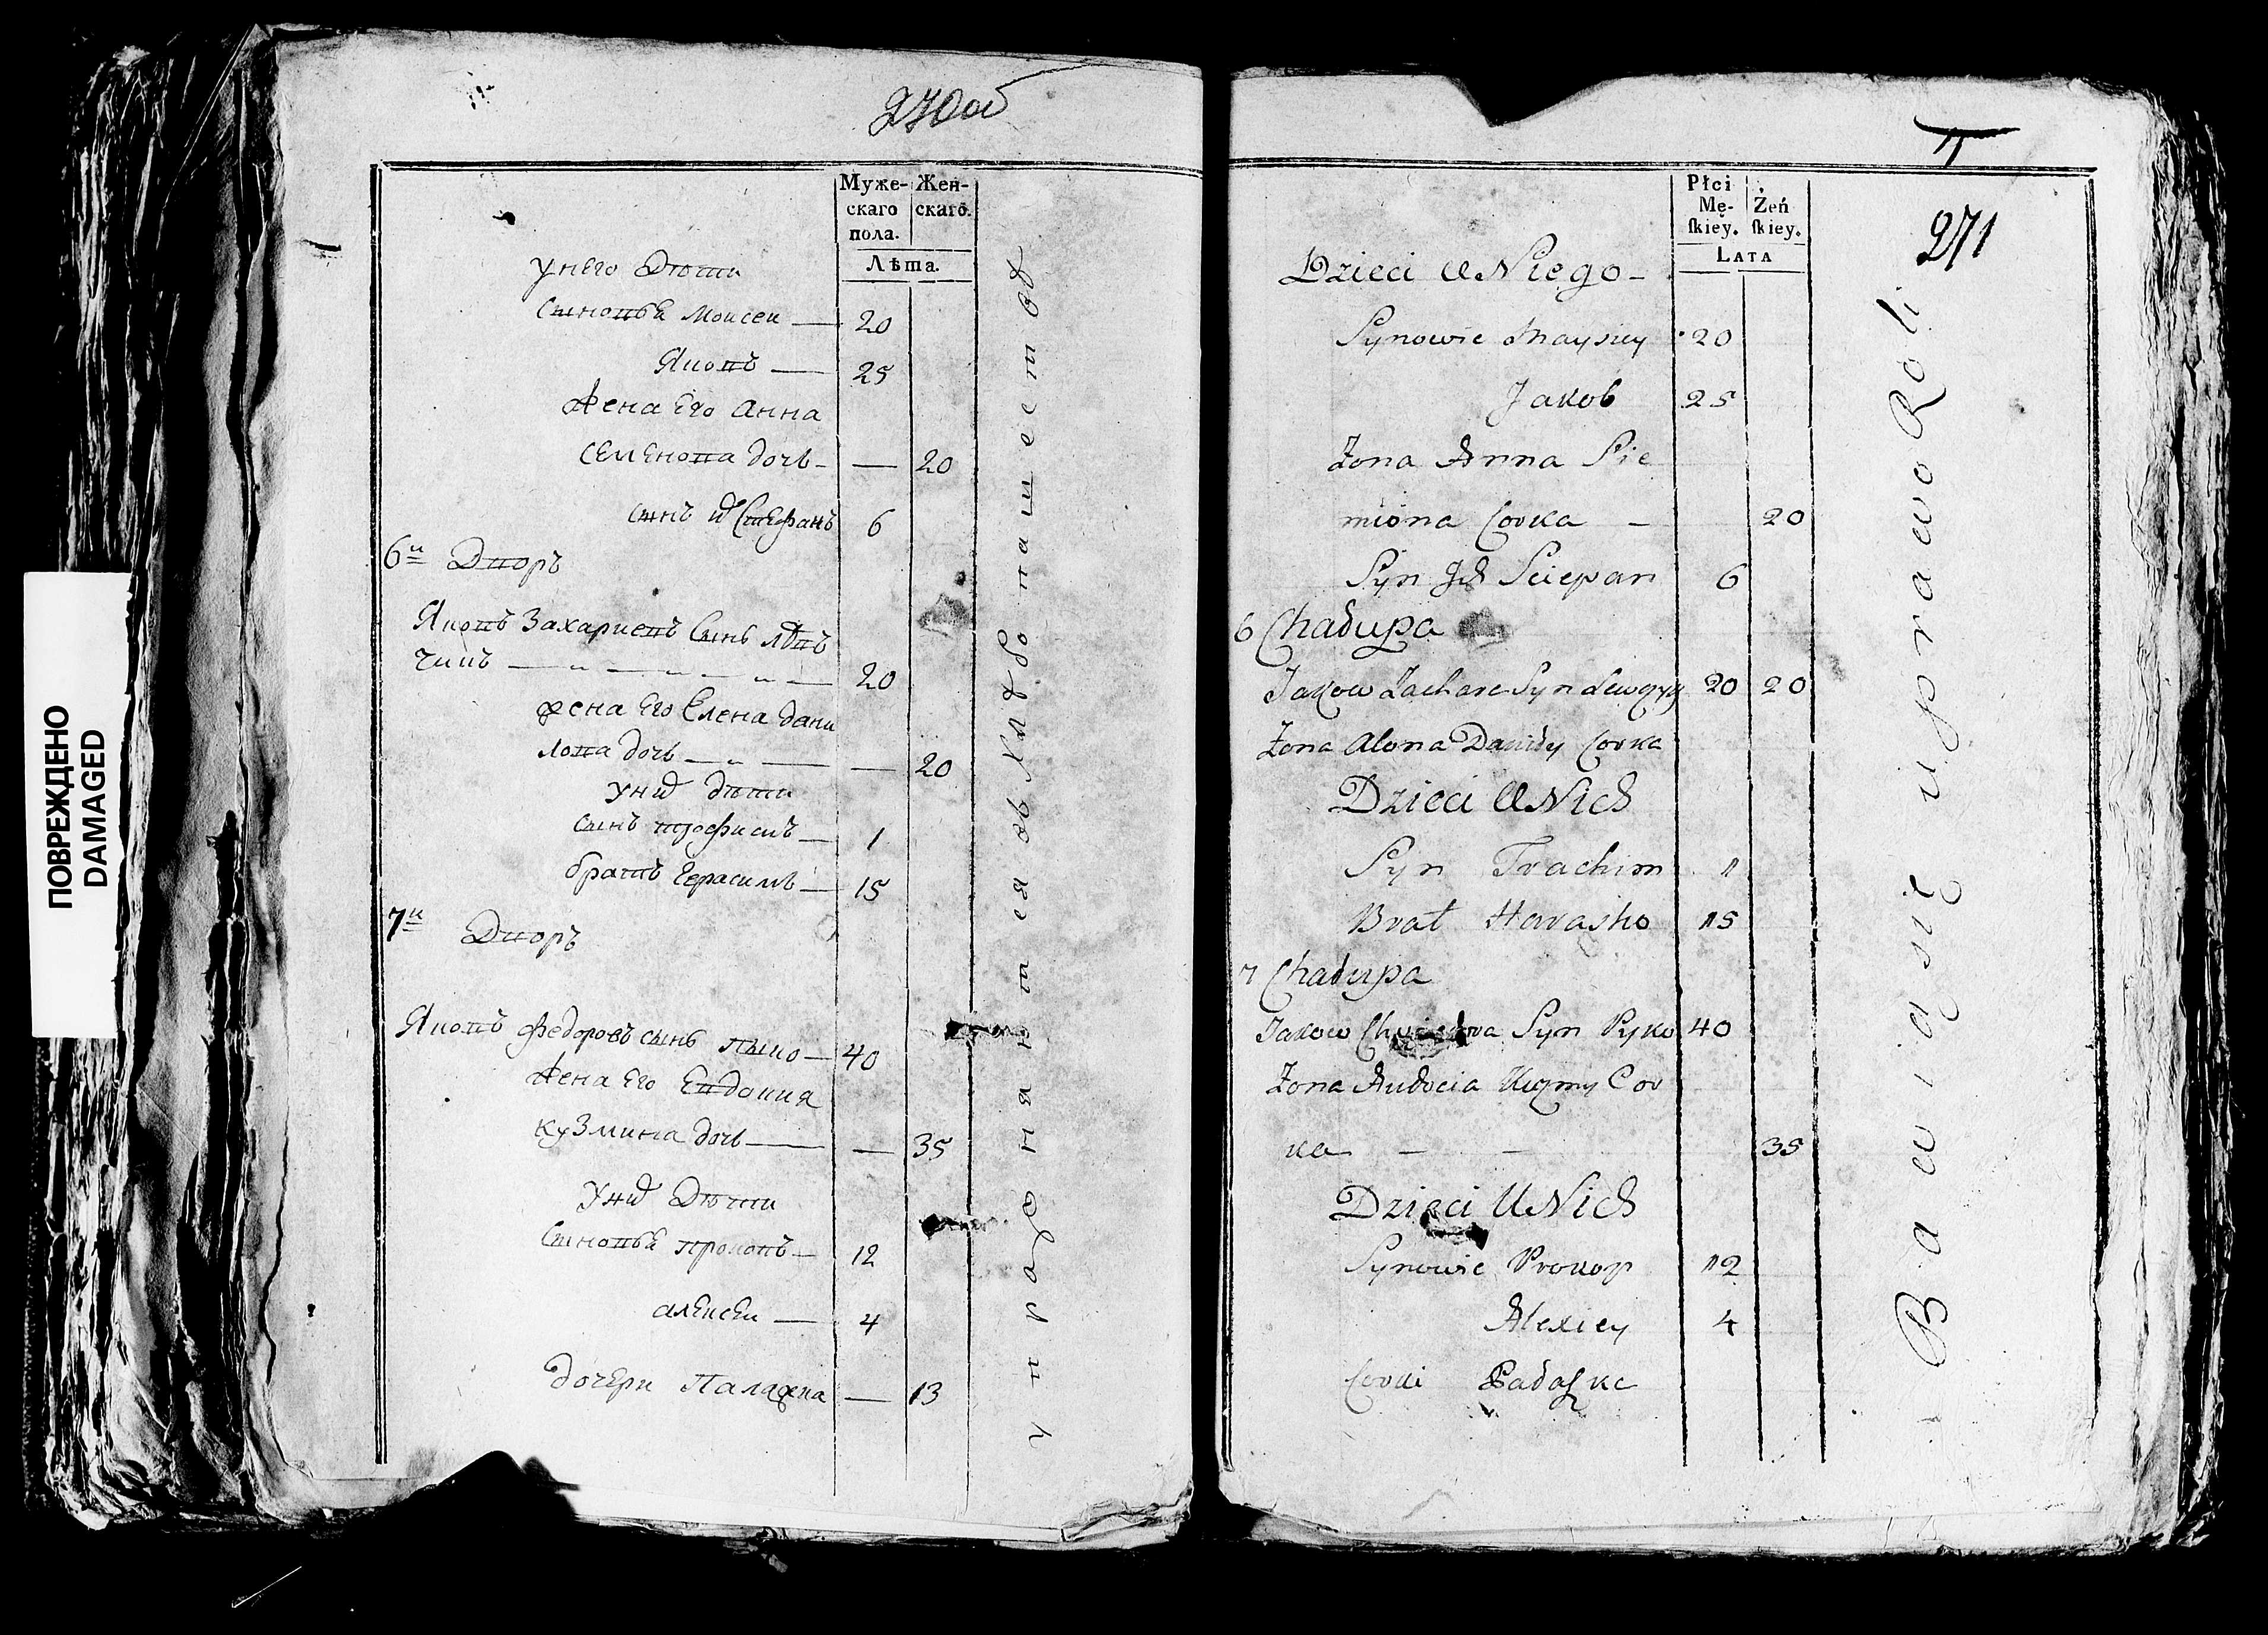 ПОВРЕЖДЕНО
DAMAGED
270об
Муже-
скаго
пола.
Жен-
скаго.
Лѣта.
У него Дѣти
Сыновья Моисеи — 20
Яковъ — 25
Жена Его Анна
Семенова дочь — — 20
Сынъ их Стефанъ 6
6й Дворъ
Яковъ Захариевъ Сынъ Лев
чикъ — 20
Жена Его Елена Дани
лова дочь — — 20
У них дѣти
Сынъ трофимъ — 1
братъ Герасимъ — 15
7й Дворъ
Яковъ Федоровъ сынъ пыко — 40
Жена Его Евдокия
кузмина дочь — — 35
У них Дѣти
Сыновья прокопъ — 12
алексеи — 4
дочери Палажка — 13
упражняются в хлебопашестве
271
Płci
Mę-
skiey.
Żeń
skiey.
LATA
Dzieci U Niego -
Synowie Maysiey 20
Jakob 25
Zona Anna Sie
miona Corka - 20
Syn Ich Sciepan 6
6 Chadupa
Jakow Zachare Syn Lewczyk 20 20
Zona Alona Daniły Corka
Dzieci U Nich
Syn Trachim 1
Brat Harasko 15
7 Chadupa
Jakow Syn Pyko 40
Zona Audocia Kuzmy Cor
ka - - 35
Dzieci U Nich
Synowie Prokop 12
Alexiey 4
Corki Padaszke
Bawią się uprawo Roli